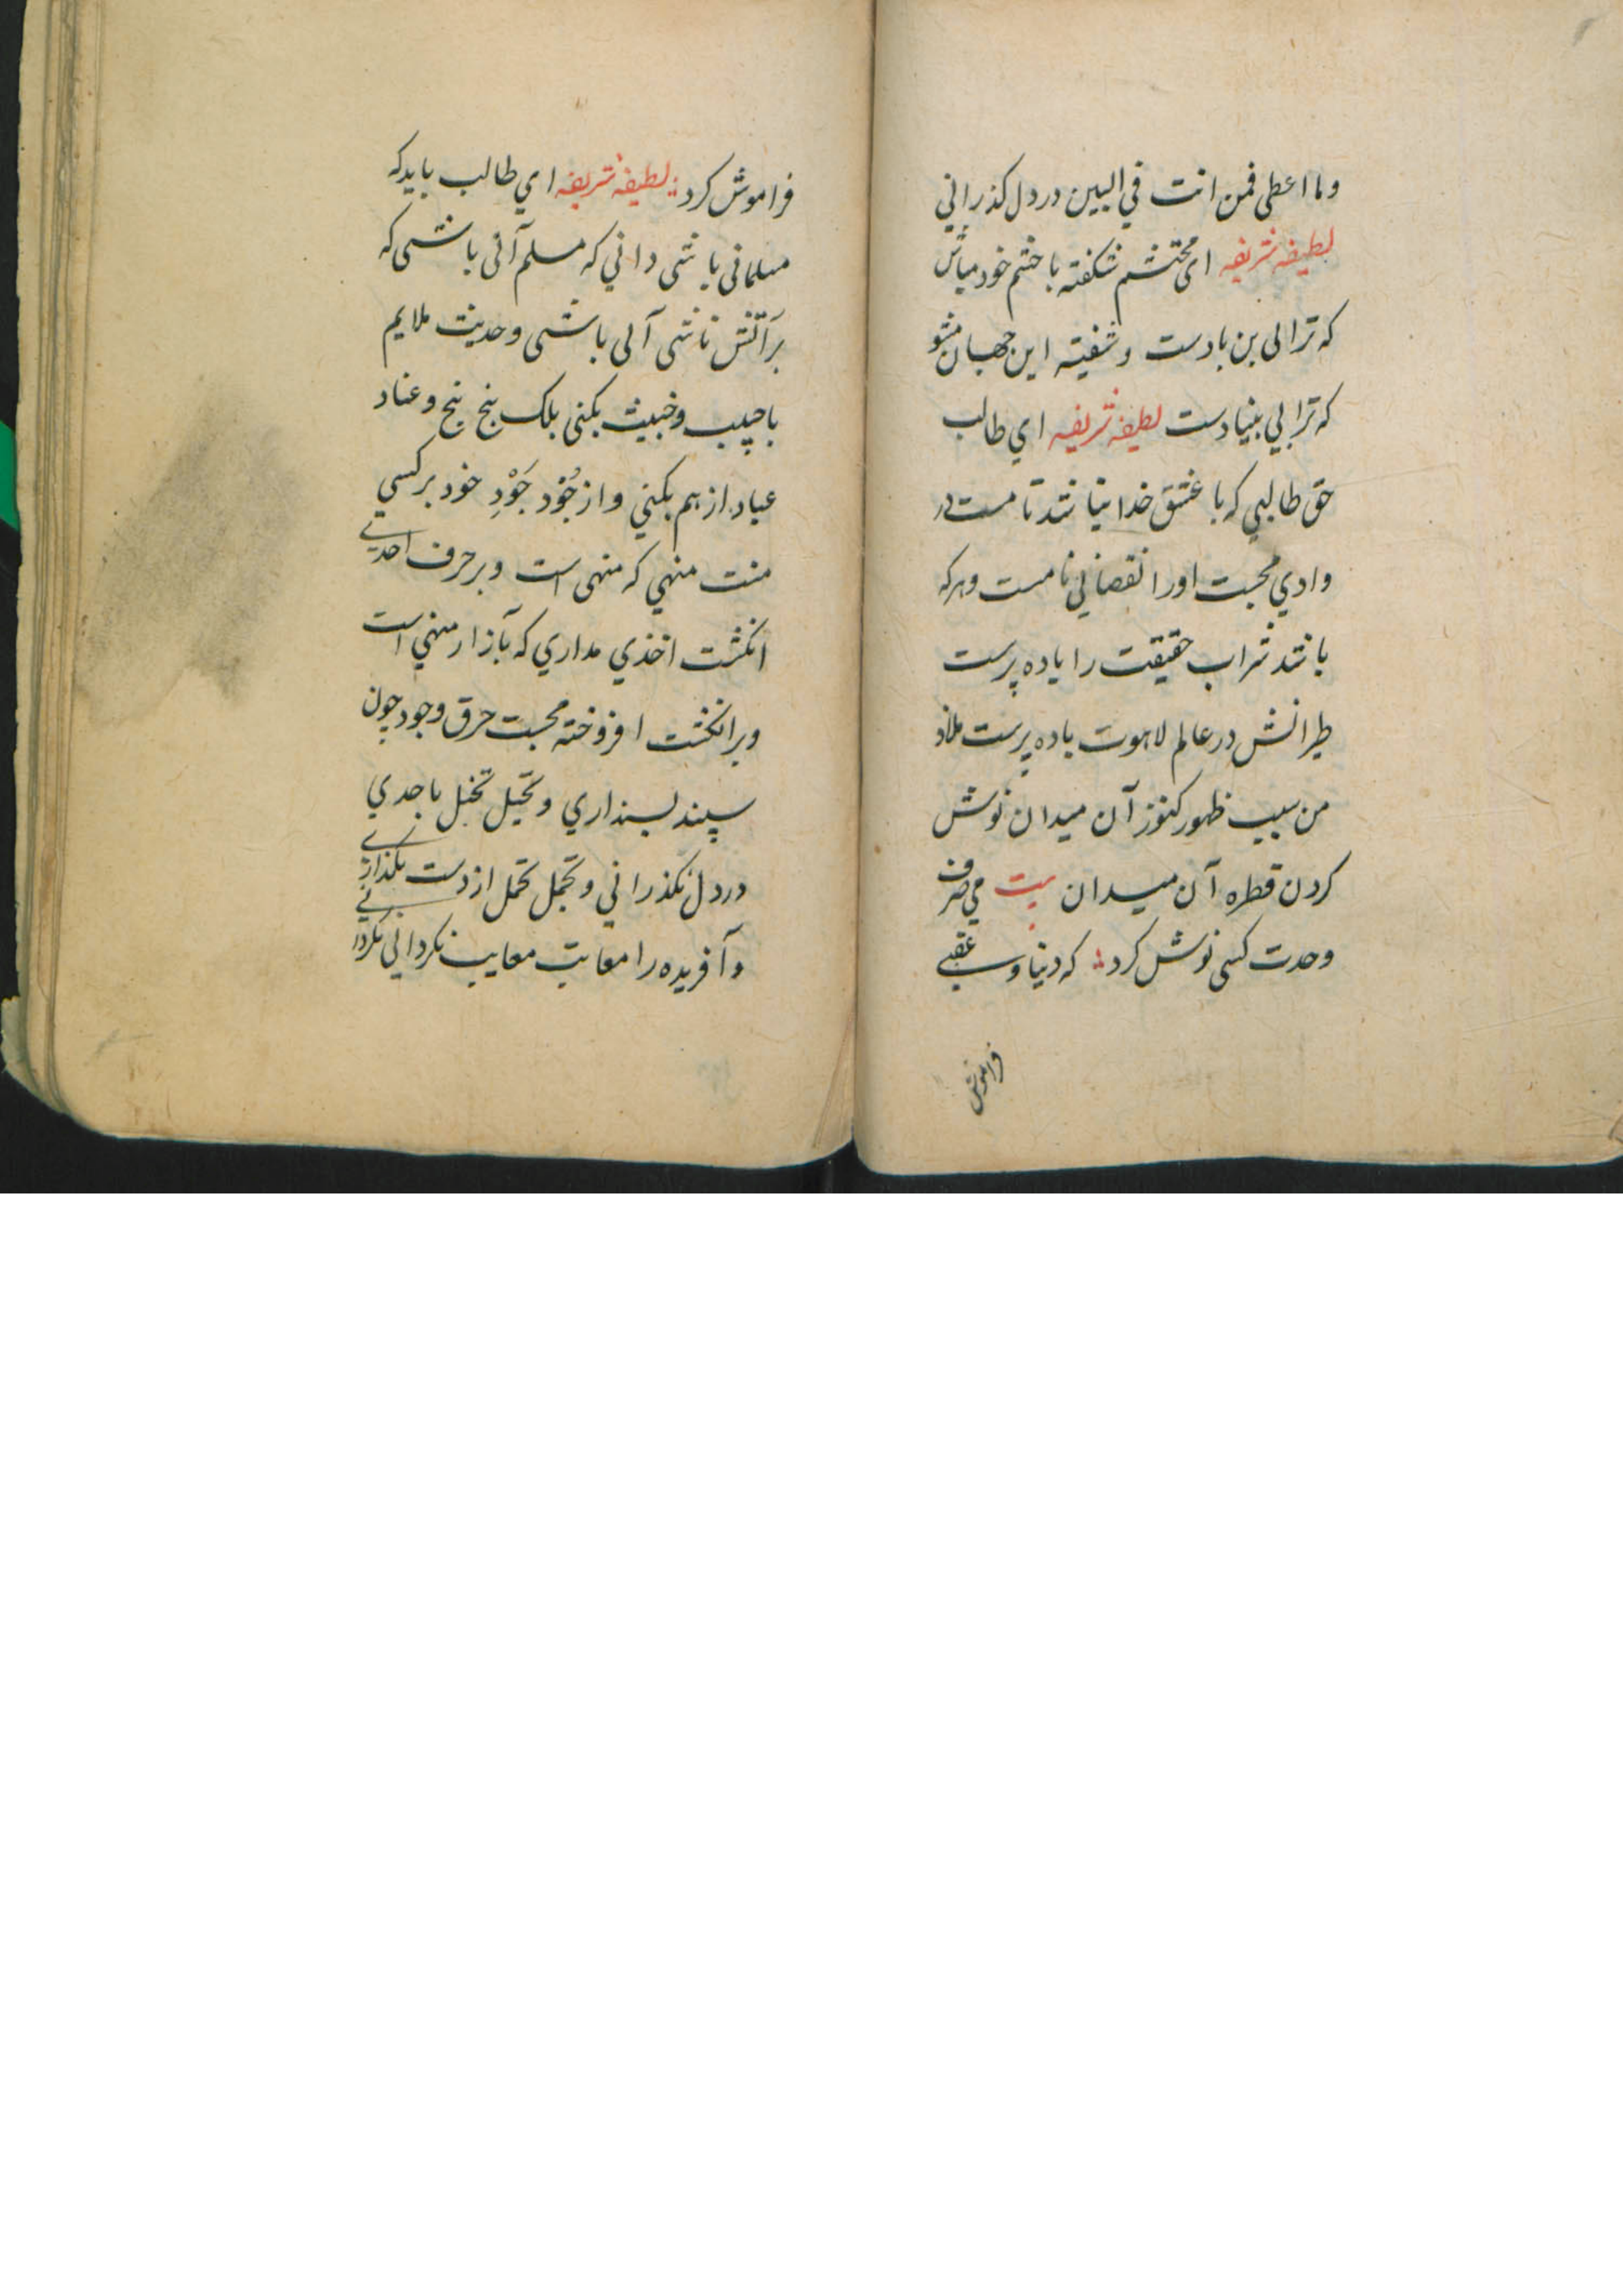 وما اعطی فمن انت في البين در دل كذراني
لطيفه شريفه اي محتشم شكفته با خشم خود مباش
كه ترا لی بن بادست و شفيته اين جهان مشو
كه ترا بي بنيادست لطيفه شريفه اي طالب
حق طالبي كه با عشق خدا نباشد تا مست در
وادي محبت اورا نقصاني نامست وهركه
باشد شراب حقيقت را باده پرست
طيرانش در عالم لاهوت باده پرست ملاذ
من سبب ظهور كنوز آن ميدان نوش
كردن قطره آن ميدان بيت مي صرف
وحدت كسی نوش كرد كه دنيا و عقبے
فراموش
فراموش كرد لطيفه شريفه اي طالب بايد كه
مسلمانی باشی داني كه مسلم آنی باشی كه
بر آتش ناشی آلی باشی وحديث ملايم
با حبيب وخبيث بكنی بلك بنج بنج وعناد
عباد از هم بكني واز جُوْد جَوْدِ خود بر كسي
منت منهي كه منهی است وبر حرف احدے
انكشت اخذي مداري كه بآزار منهي است
وبر انكشت افروخته محبت حرق وجود چون
سپند لسنداري وتخيل تخيل با جدي
در دل نكذراني وتحمل تحمل از دست نكذارے
وآفريده را معاتب معايب نكرداني نكرد